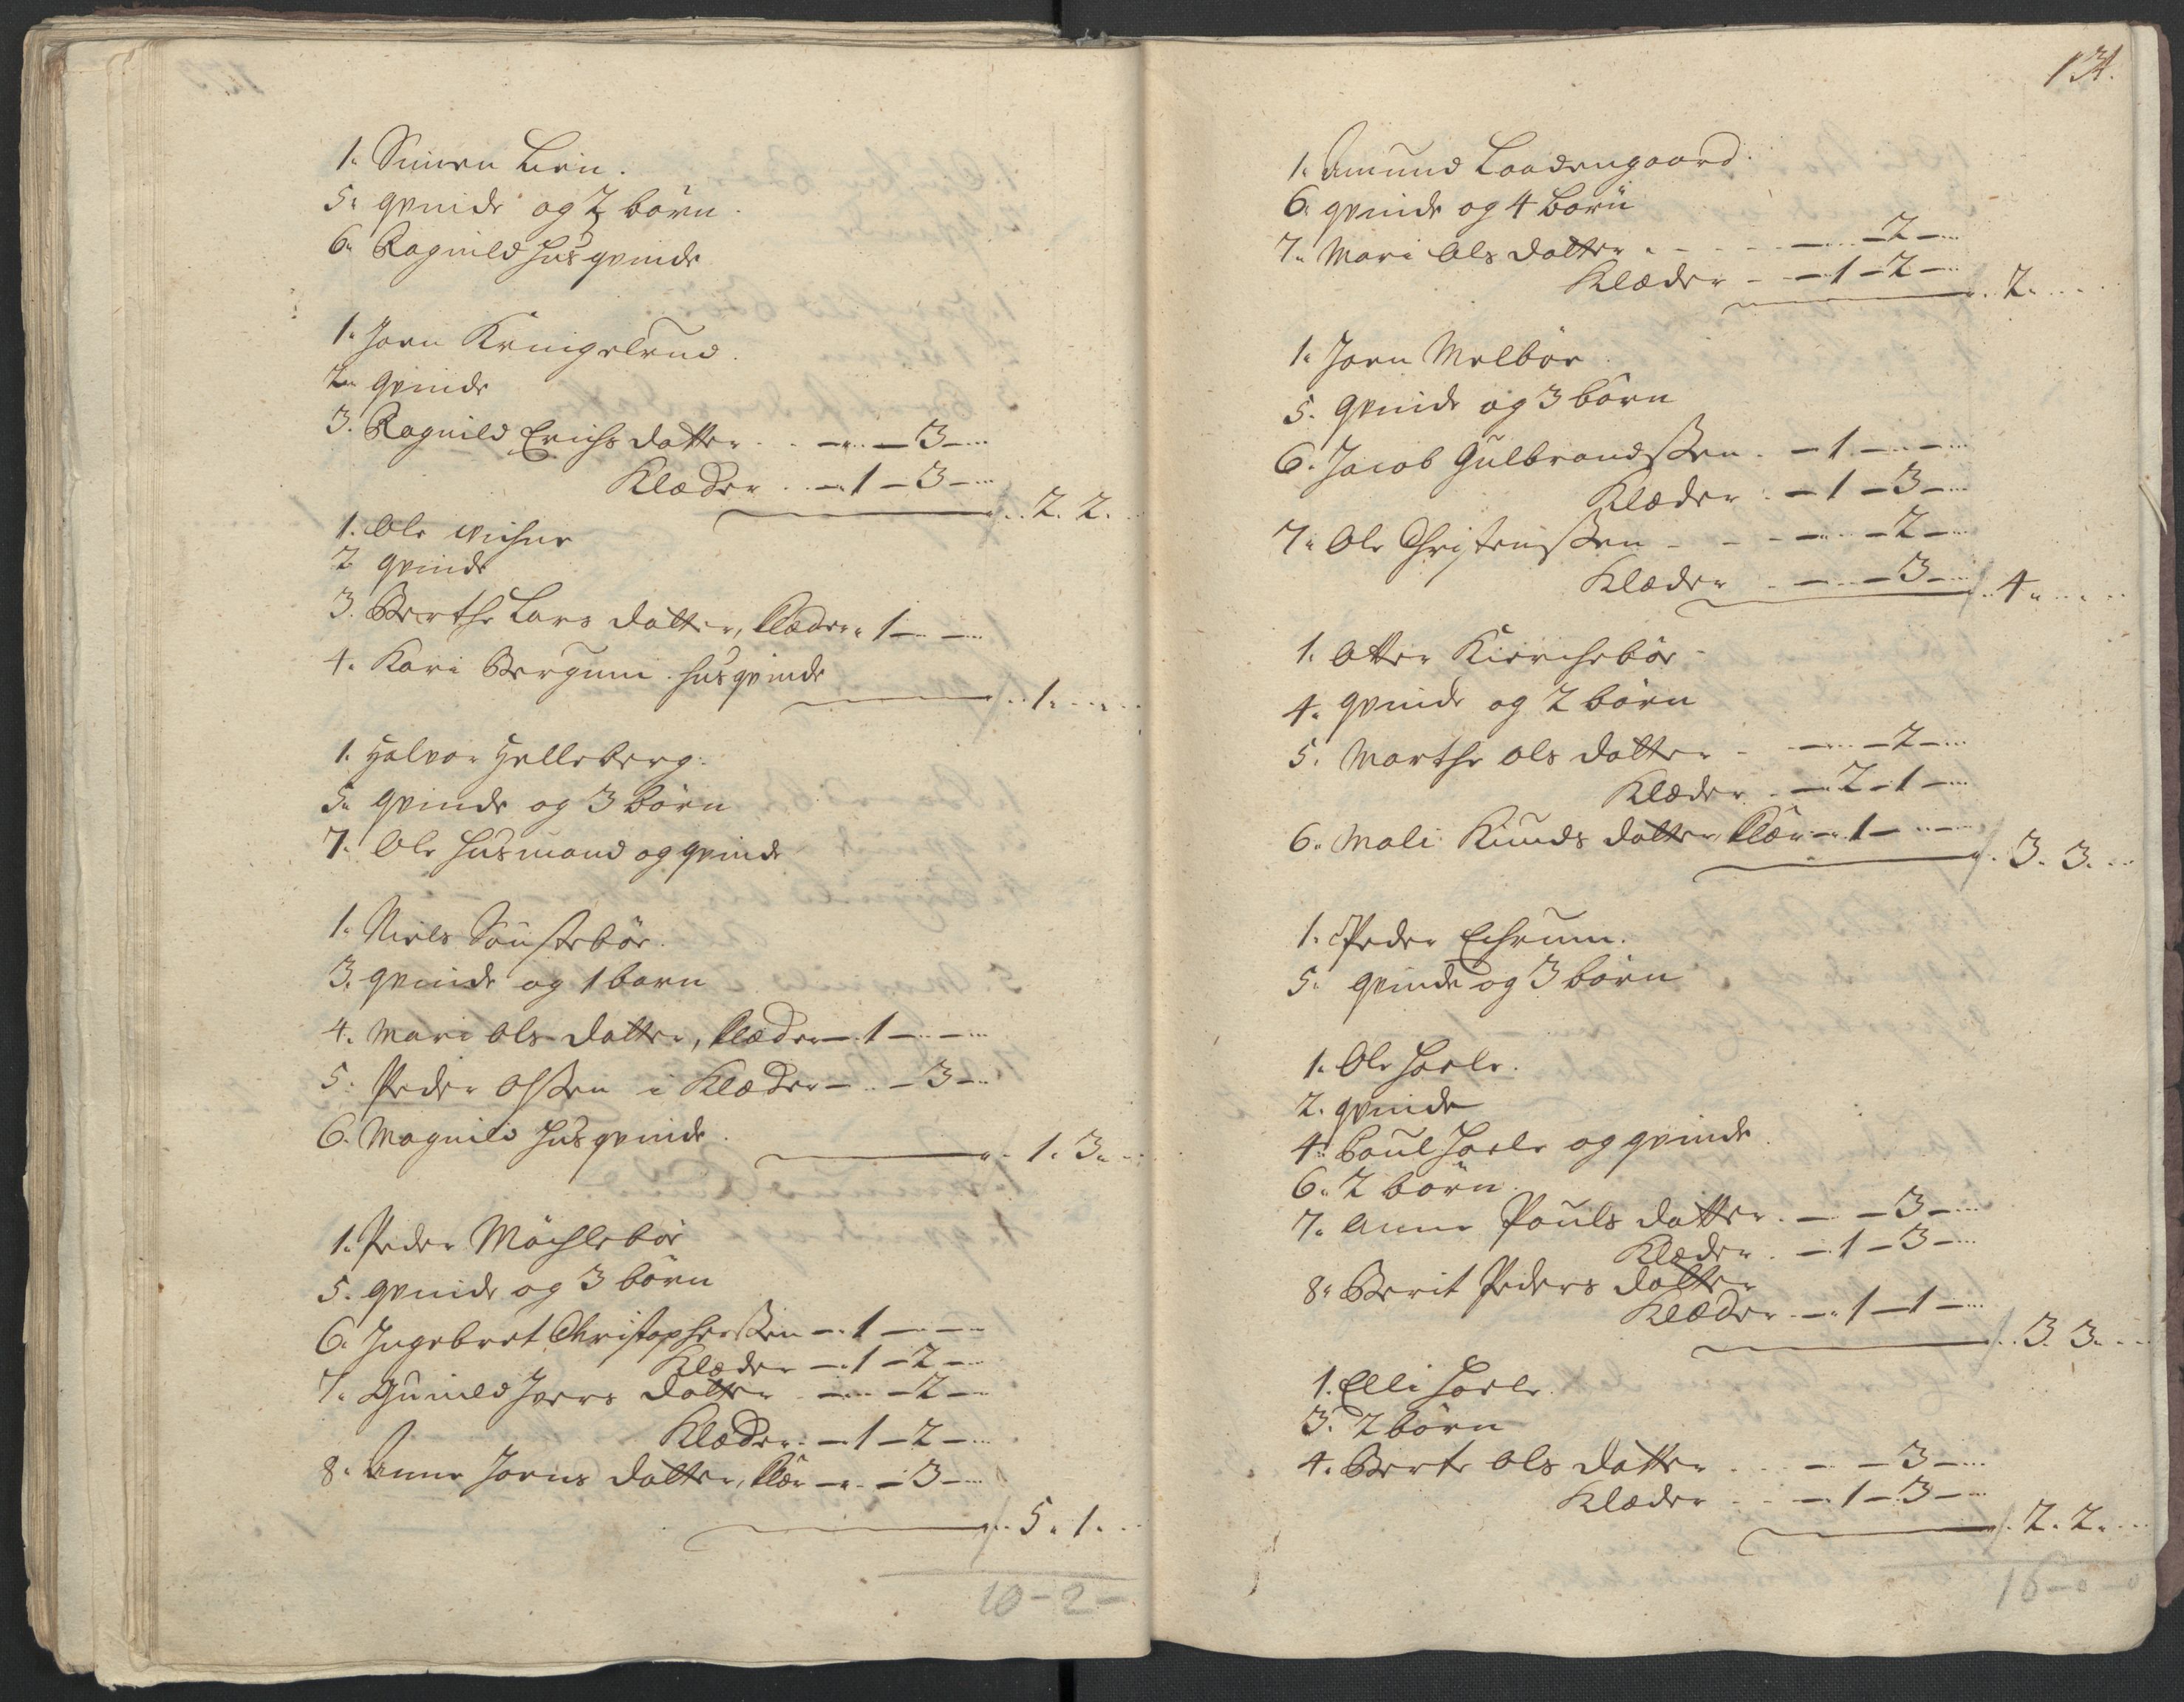 1. Simen Lien.
5. qvinde og 2 börn.
6. Ragnild Husqvinde
1. Joen Kringelrud.
2. qvinde
3. Ragnild Erichs datter - - 3 -
Klæder - 1 - 3 -
2. 2.
1. Ole
2 qvinde
3. Berthe Lars datter, klæder 1 - -
4. Kari Bergum. Husqvinde
1.
1. Halvor Helleberg.
5. qvinde og 3 börn
7. Ole Husmand og qvinde
1. Niels Söustebör.
3. qvinde og 1 barn
4. Mari Ols datter, klæder - 1 - -
5. Peder Olssen i Klæder - - 3 -
6. Magnild Husqvinde.
1. 3.
1. Peder Möchlebör
5. qvinde og 3 börn
6. Ingebret Christophersen - 1 - -
Klæder - 1 - 2 -
7. Gunild Ivers datter - - 2 -
Klæder - 1 - 2 -
8. Anne Joens datter, klær - - 3 -
5. 1.
10 - 2 -
131.
1. Amund Laadengaard.
6. qvinde og 4 börn
7. Mari Ols datter - - 2 -
Klæder - 1 - 2 -
2.
1. Joen Melbör
5. qvinde og 3 börn
6. Jacob Gulbrandssen - 1 - -
Klæder - 1 - 3 -
7. Ole Christenssen - - 2 -
Klæder - - 3 -
4.
1. Otter Kierchebör
4. qvinde og 2 börn
5. Marthe Ols datter - - 2 -
Klæder - 2 - 1 -
6. Mali Knuds datter, klær - 1 - -
3. 3.
1. Peder Echrum.
5. qvinde og 3 börn
1. Ole Haele.
2. qvinde
4. Poul Haele og qvinde.
6. 2 börn.
7. Anne Pouls datter - - 3 -
Klæder - 1 - 3 -
8. Berit Peders datter
Klæder - 1 - 1 -
3. 3.
1. Elli Haele.
3. 2 börn
4. Berte Ols datter - - 3 -
Klæder - 1 - 3 -
2. 2.
16 - 0 - 0